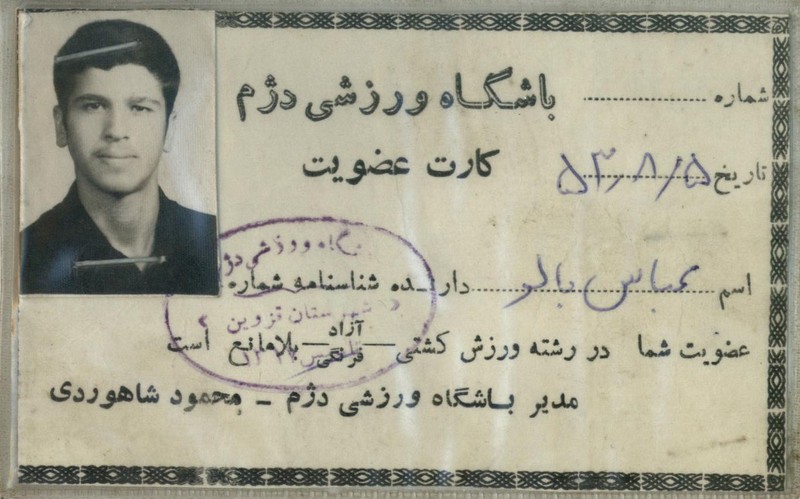 باشگاه ورزشی دژم
شماره
کارت عضویت
تاریخ ۵۳/۸/۵
اسم عباس بالو دارنده شناسنامه شماره
عضویت شما در رشته ورزش کشتی آزاد فرنگی بلامانع است
مدیر باشگاه ورزشی دژم - محمود شاهوردی
باشگاه ورزشی دژم
شهرستان قزوین